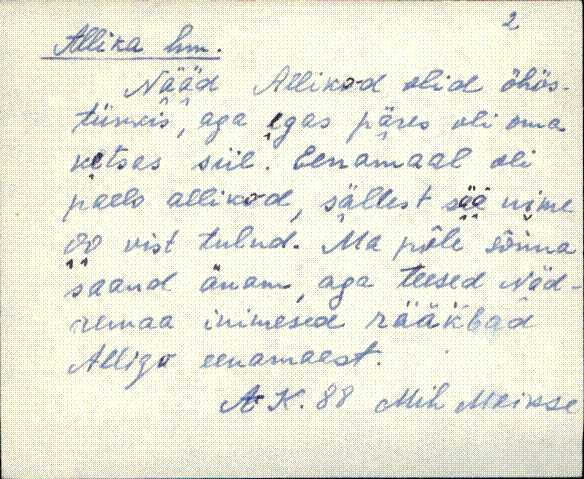 2
Allika hm.
Nääd Allikod olid öhös-
tükkis, aga egas päres oli oma
ketsas siil. Eenamaal oli
paelo allikod, sällest sää nime
oo vist tulnd. Ma pole sönna
saand änam, aga teesed Näd-
remaa inimesed rääkbad
Alligo eenamaast.
AK. 88 Mih Meikse